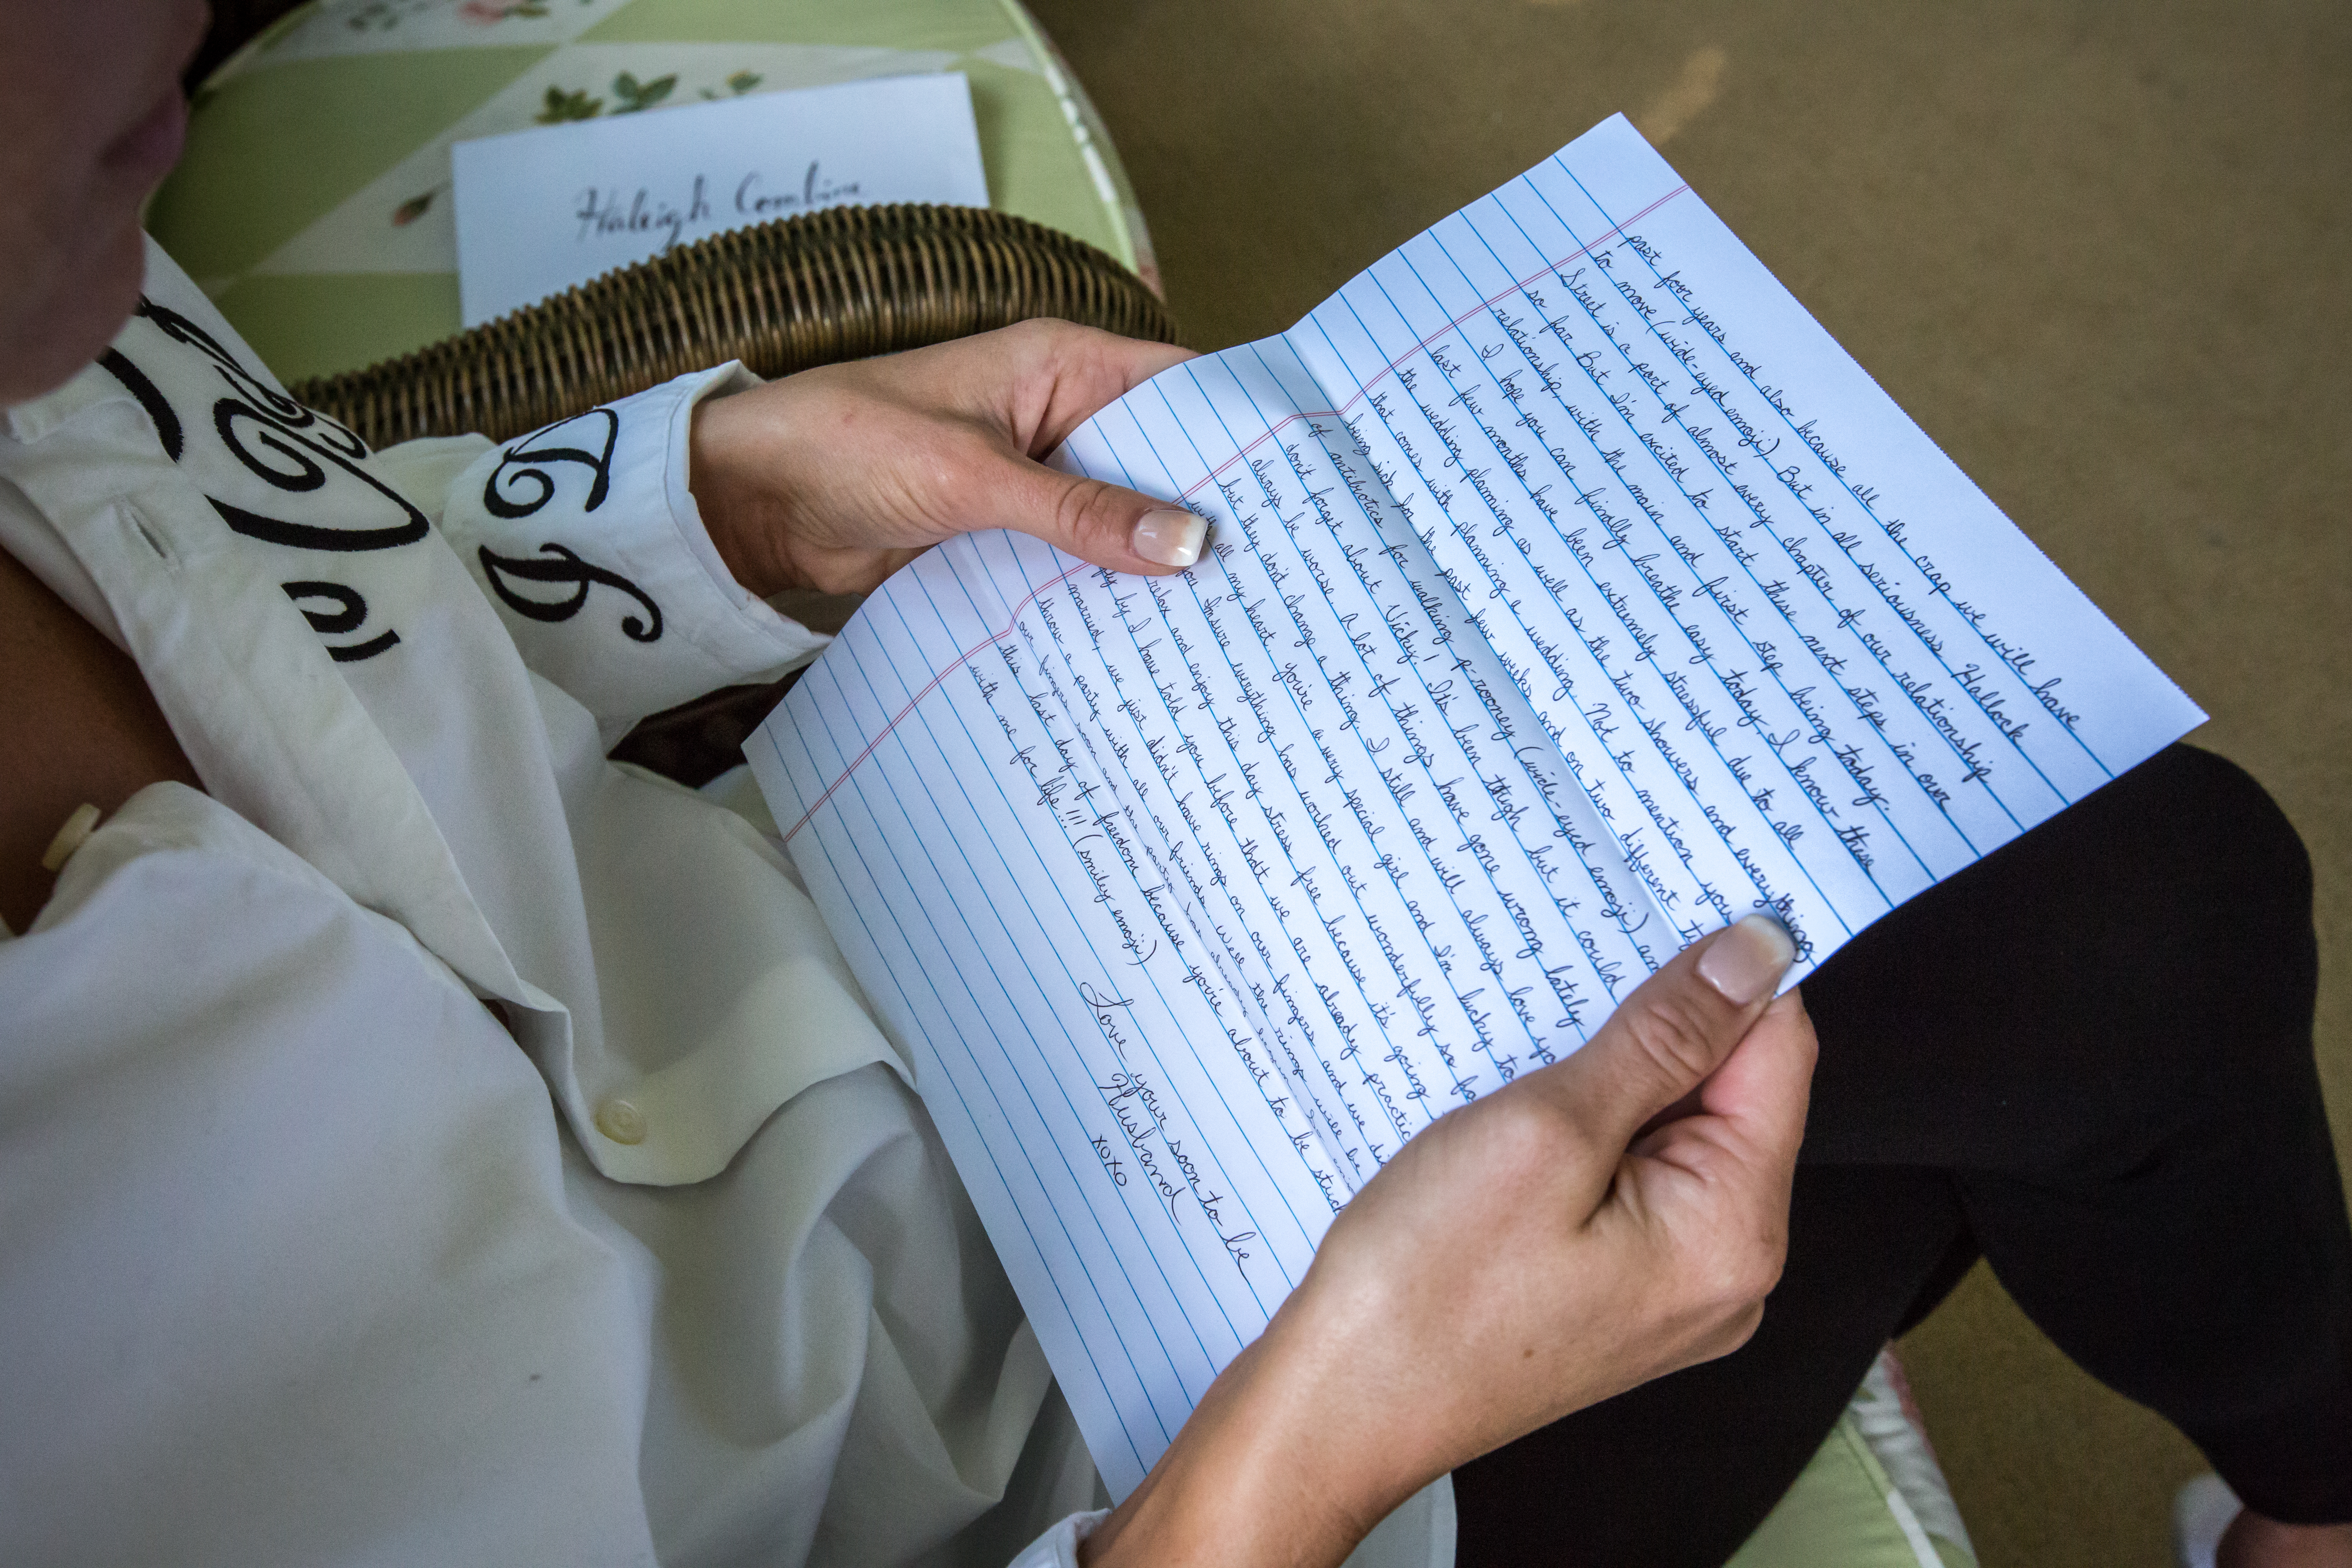 Haleigh
past four years and also because all the crap we will have
to move (wide-eyed emoji) But in all seriousness Hallock
Street is a part of almost every chapter of our relationship
so far. But I'm excited to start these next steps in our
relationship, with the main and first step being today.
I hope you can finally breathe easy today, I know these
last few months have been extremely stressful due to all
the wedding planning as well as the two showers and everything
that comes with planning a wedding. Not to mention you
being sick in the past few weeks and on two different
of antibiotics for walking p-rooney (wide-eyed emoji) an
don't forget about Vicky! It's been though but it could
always be worse. A lot of things have gone wrong lately
but they don't change a thing. I still and will always love yo
with all my heart. You're a very special girl and I'm lucky to
you. Insure everything has worked out wonderfully so fa
relax and enjoy this day stress free because it's going
by I have told you before that we are already practic
married, we just didn't have rings on our fingers and we di
throw a party with all our friends. Well the rings will be
our fingers soon and the
this last day of freedom because you're about to be stuck
with me for life!!! (smiley emoji)
Love your soon to be
Husband
xoxo